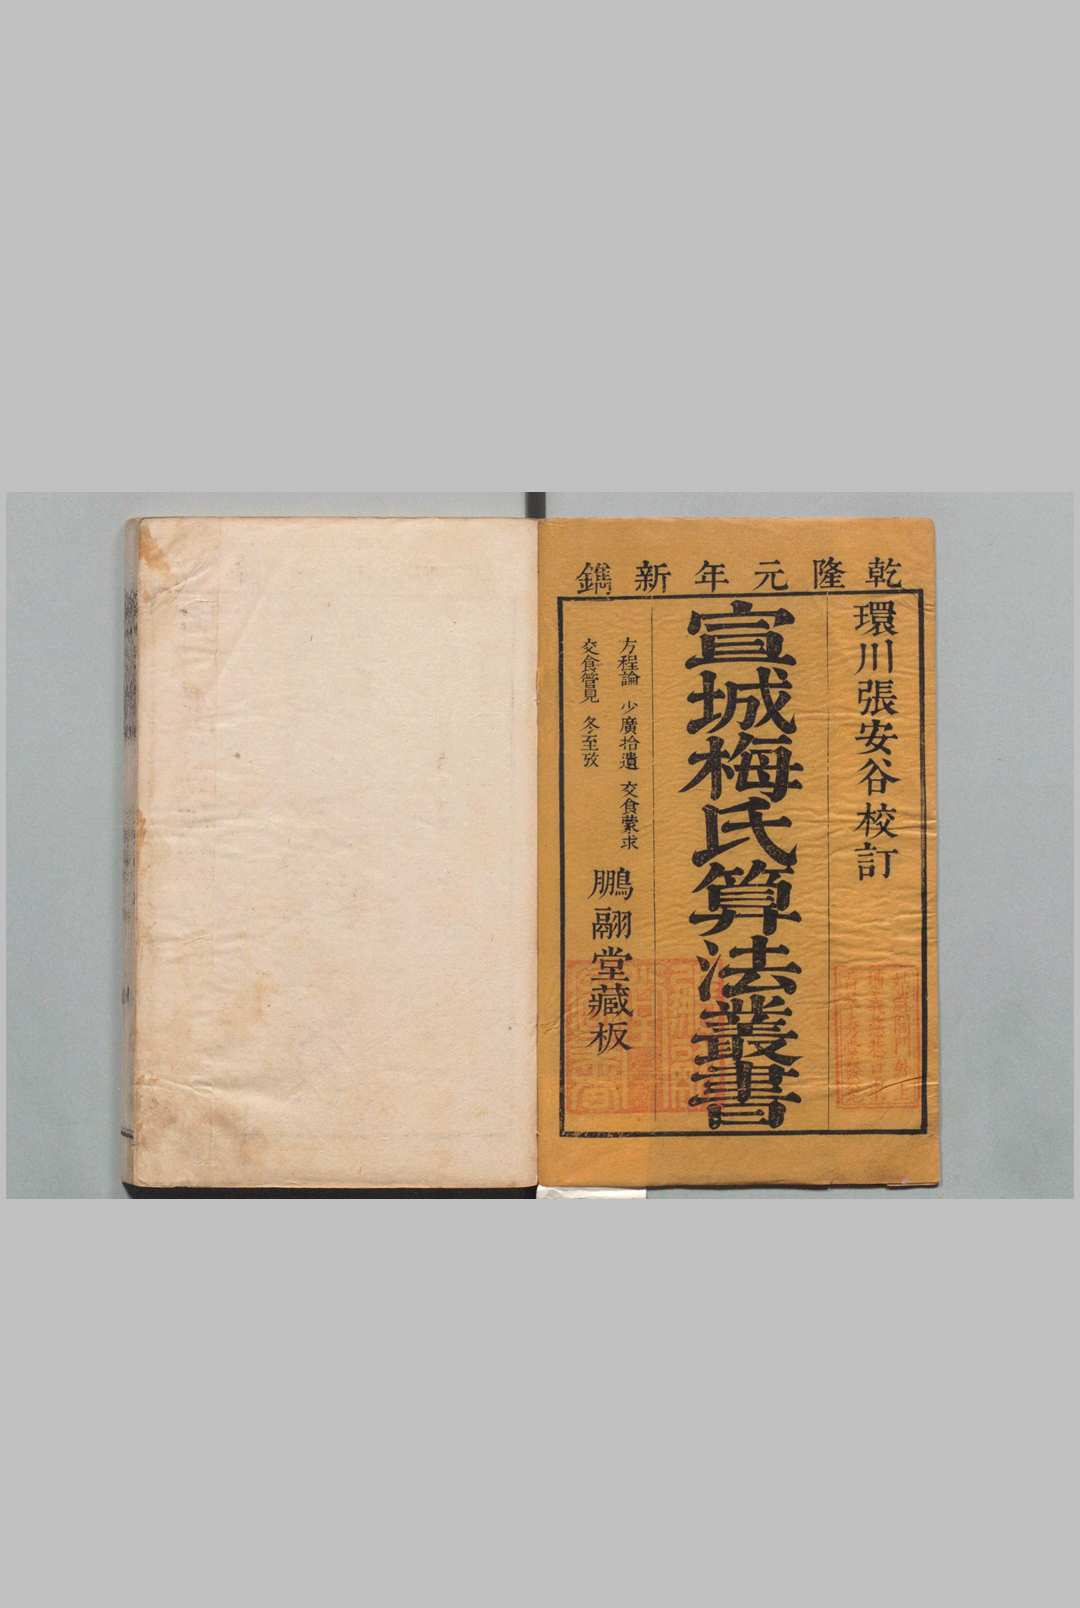 乾隆元年新鐫
環川張安谷校訂
宣城梅氏算法叢書
方程論 少廣拾遺 交食蒙求
交食管見 冬至攷
鵬翮堂藏板